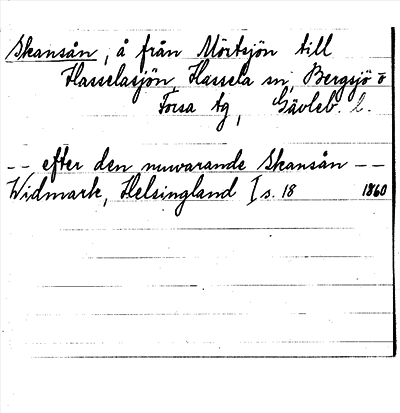 Skansån, å från Mörtsjön till
Hasselasjön, Hassela sn, Bergsjö o
Forsa tg, Gävleb. l.
-- efter den nuvarande Skansån --
Widmark, Helsingland I s. 18 1860